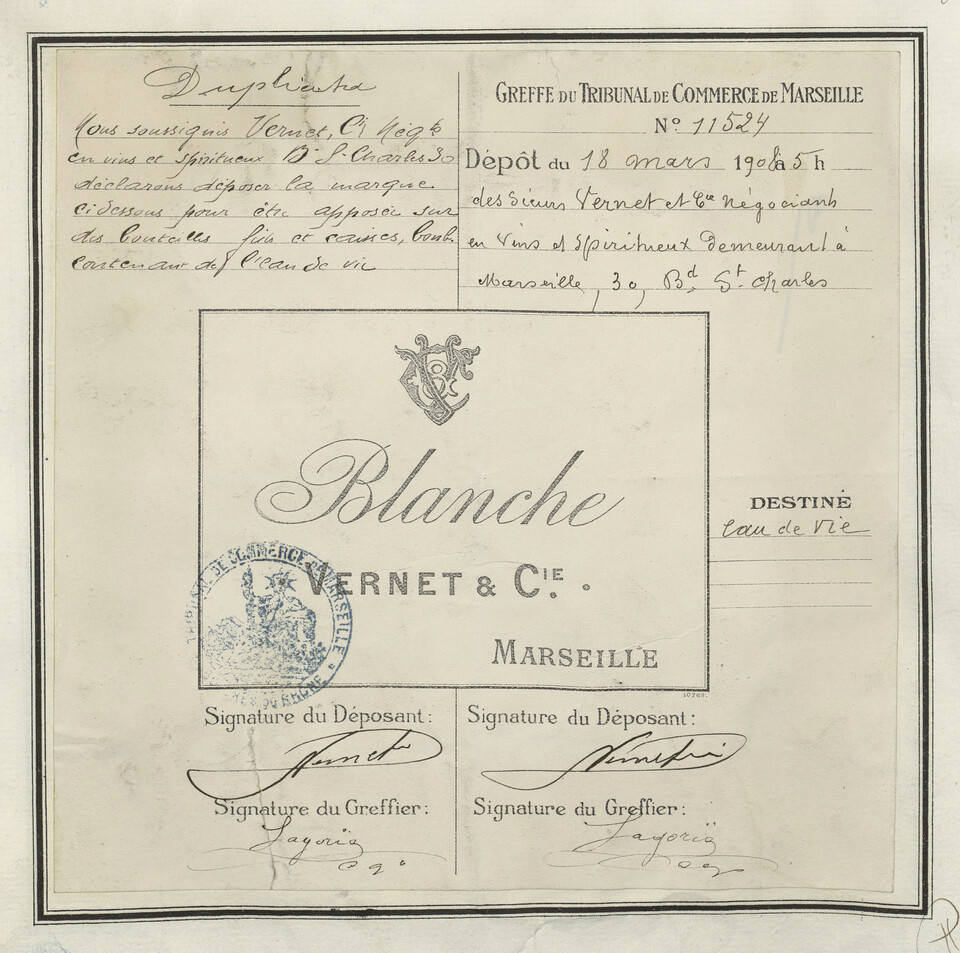 Duplicata
Nous soussignés Vernet, Cie Négts
en vins et spiritueux Bd St Charles 30
déclarons déposer la marque
ci dessous pour être apposée sur
des bouteilles fûts et caisses, bonb.
contenant de l'eau de vie
GREFFE DU TRIBUNAL DE COMMERCE DE MARSEILLE
No 11524
Dépôt du 18 mars 1908 à 5 h
des Sieurs Vernet et Cie négociants
en Vins et Spiritueux Demeurant à
Marseille, 30, Bd St Charles
Blanche
VERNET & CIE.
MARSEILLE
10769.
DESTINÉ
eau de vie
TRIBUNAL DE COMMERCE DE MARSEILLE
BCHES DU RHÔNE
Signature du Déposant:
Vernet
Signature du Déposant:
Signature du Greffier:
Lagorio
Signature du Greffier:
Lagorio